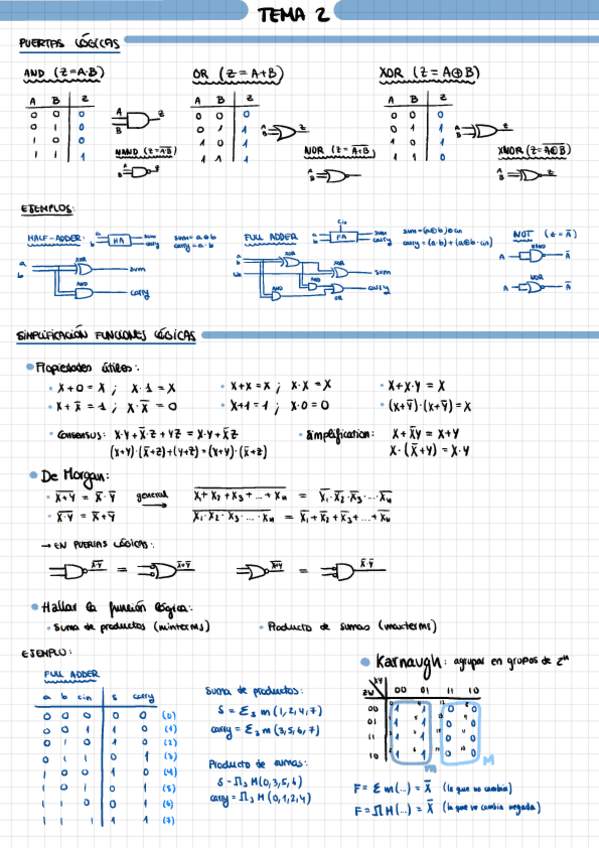 TEMA 2
PUERTAS LÓGICAS
AND (Z=A·B)
OR (Z=A+B)
XOR (Z=A⊕B)
A B Z
0 0 0
0 1 0
1 0 0
1 1 1
A B Z
0 0 0
0 1 1
1 0 1
1 1 1
A B Z
0 0 0
0 1 1
1 0 1
1 1 0
A B Z
NAND (Z=A̅·̅B̅)
NOR (Z=A̅+̅B̅)
XNOR (Z=A̅⊕̅B̅)
EJEMPLOS:
HALF-ADDER:
a b HA sum carry
sum=a⊕b
carry=a·b
a
b
XOR
sum
AND
carry
FULL ADDER
cin
a b FA sum carry
sum=(a⊕b)⊕cin
carry=(a·b)+(a⊕b·cin)
a
b
XOR
XOR
sum
AND
AND
OR
carry
NOT (Z=A̅)
NAND
A A̅
NOR
A A̅
SIMPLIFICACIÓN FUNCIONES LÓGICAS
Propiedades útiles:
· X+0=X ; X·1=X
· X+X=X ; X·X=X
· X+X·Y=X
· X+X̅=1 ; X·X̅=0
· X+1=1 ; X·0=0
· (X+Y̅)·(X+Y)=X
· Consensus: X·Y+X̅·Z+YZ=X·Y+X̅Z
(X+Y)·(X̅+Z)+(Y+Z)=(X+Y)·(X̅+Z)
· Simplification: X+X̅Y=X+Y
X·(X̅+Y)=X·Y
De Morgan:
· X̅+̅Y̅=X̅·Y̅ general X̅₁+̅X̅₂+̅X̅₃+̅...+̅X̅ₙ = X̅₁·X̅₂·X̅₃·...·X̅ₙ
· X̅·̅Y̅=X̅+Y̅ → X̅₁·̅X̅₂·̅X̅₃·̅...·̅X̅ₙ = X̅₁+X̅₂+X̅₃+...+X̅ₙ
→ EN PUERTAS LÓGICAS:
X̅·̅Y̅ = X̅+Y̅
X̅+̅Y̅ = X̅·Y̅
Hallar la función lógica:
· Suma de productos (minterms)
· Producto de sumas (maxterms)
EJEMPLO:
FULL ADDER
a b cin s carry
0 0 0 0 0 (0)
0 0 1 1 0 (1)
0 1 0 1 0 (2)
0 1 1 0 1 (3)
1 0 0 1 0 (4)
1 0 1 0 1 (5)
1 1 0 0 1 (6)
1 1 1 1 1 (7)
Suma de productos:
S=Σ₃ m(1,2,4,7)
carry=Σ₃ m(3,5,6,7)
Producto de sumas:
S=Π₃ M(0,3,5,6)
carry=Π₃ M(0,1,2,4)
Karnaugh: agrupar en grupos de 2ⁿ
XY
ZW 00 01 11 10
00 1 1 0 0
01 1 1 0 0
11 1 1 0 0
10 1 1 0 0
m M
F=Σm(...)=X̅ (lo que no cambia)
F=ΠM(...)=X̅ (lo que no cambia negada)